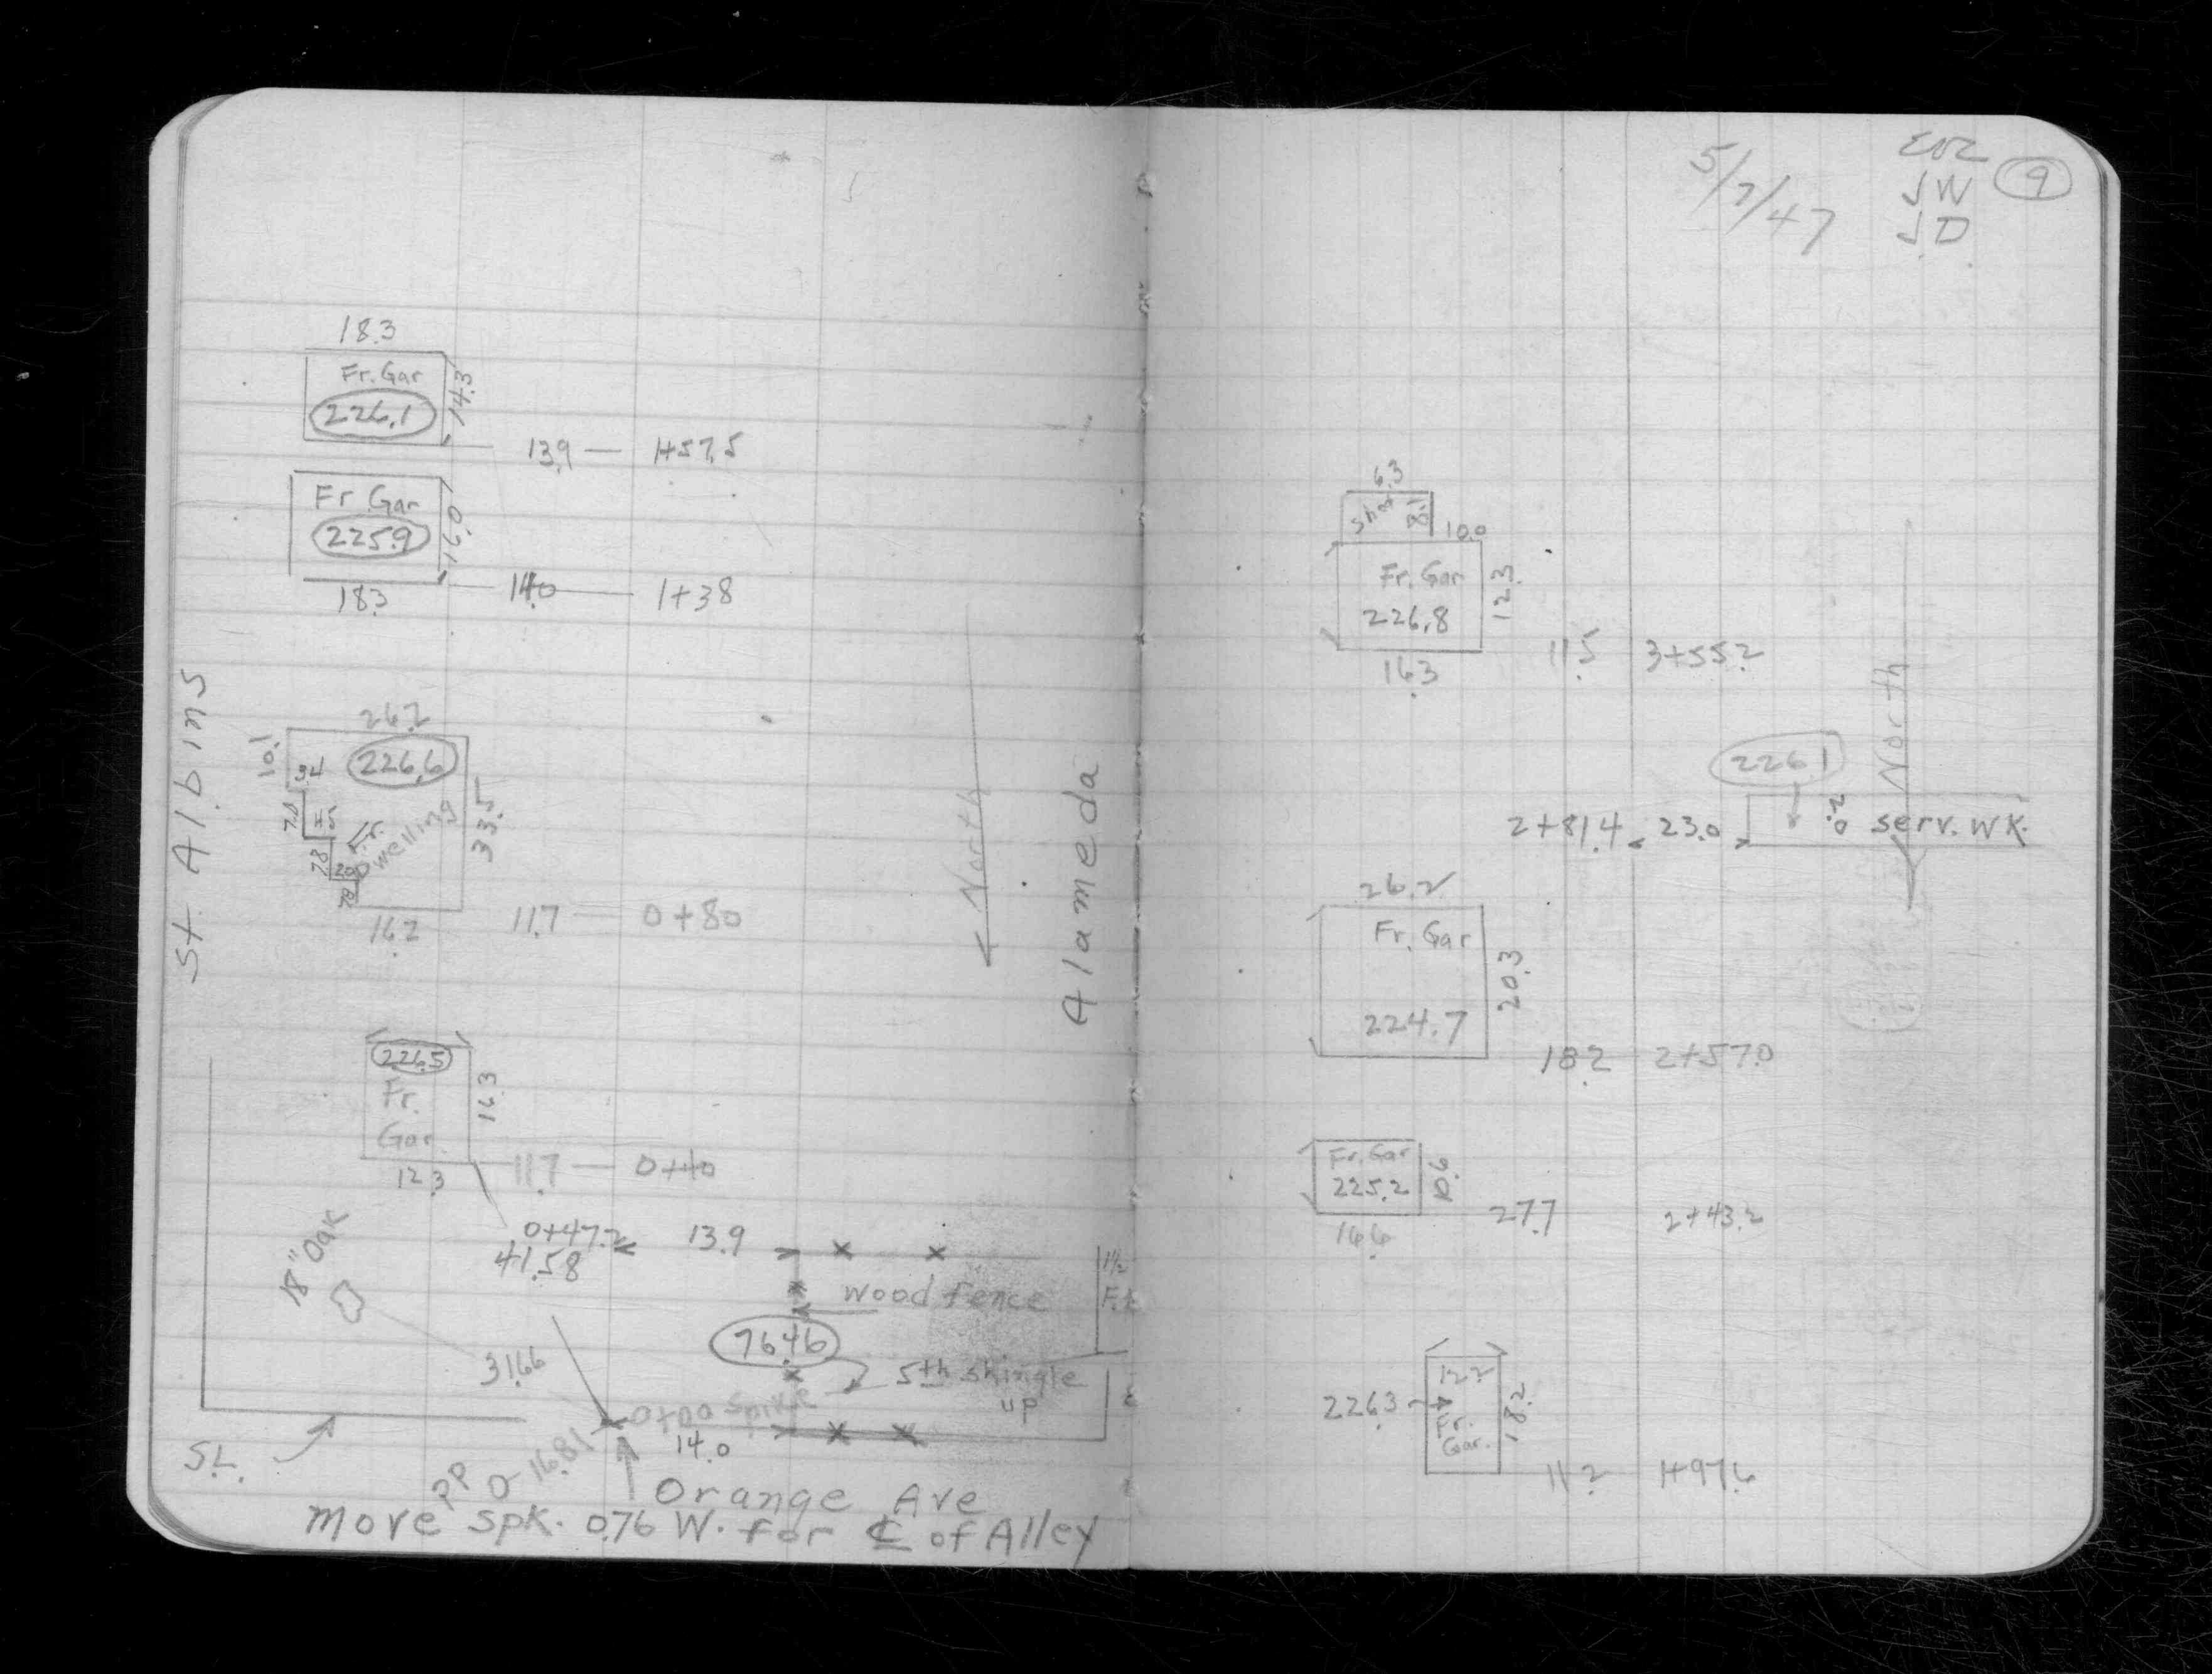 18.3
Fr. Gar
226.1
14.3
13.9 — 1+57.5
Fr Gar
225.9
16.0
18.3
14.0 — 1+38
St Albins
26.2
10.1
3.4
226.6
7.0
Fr.
Dwelling
33.5
7.8
16.2
11.7 — 0+80
North
Alameda
226.5
Fr.
Gar
16.3
12.3
11.7 — 0+40
0+47.2
41.58
13.9
18" Oak
Wood fence
1½
76.46
31.66
5th shingle
up
0+00 Spike
14.0
S.L.
PP
16.81
Orange Ave
Move Spk. 0.76 W. for ℄ of Alley
5/7/47
JW
JD
9
6.3
8.1
10.0
Fr. Gar
226.8
12.3
16.3
11.5 3+55.2
North
226.1
2+81.4 23.0
serv. WK.
26.2
Fr. Gar
224.7
20.3
18.2 2+57.0
Fr. Gar
225.2
16.6
27.7 2+43.2
12.2
226.3
Fr.
Gar.
18.2
11.2 1+97.6